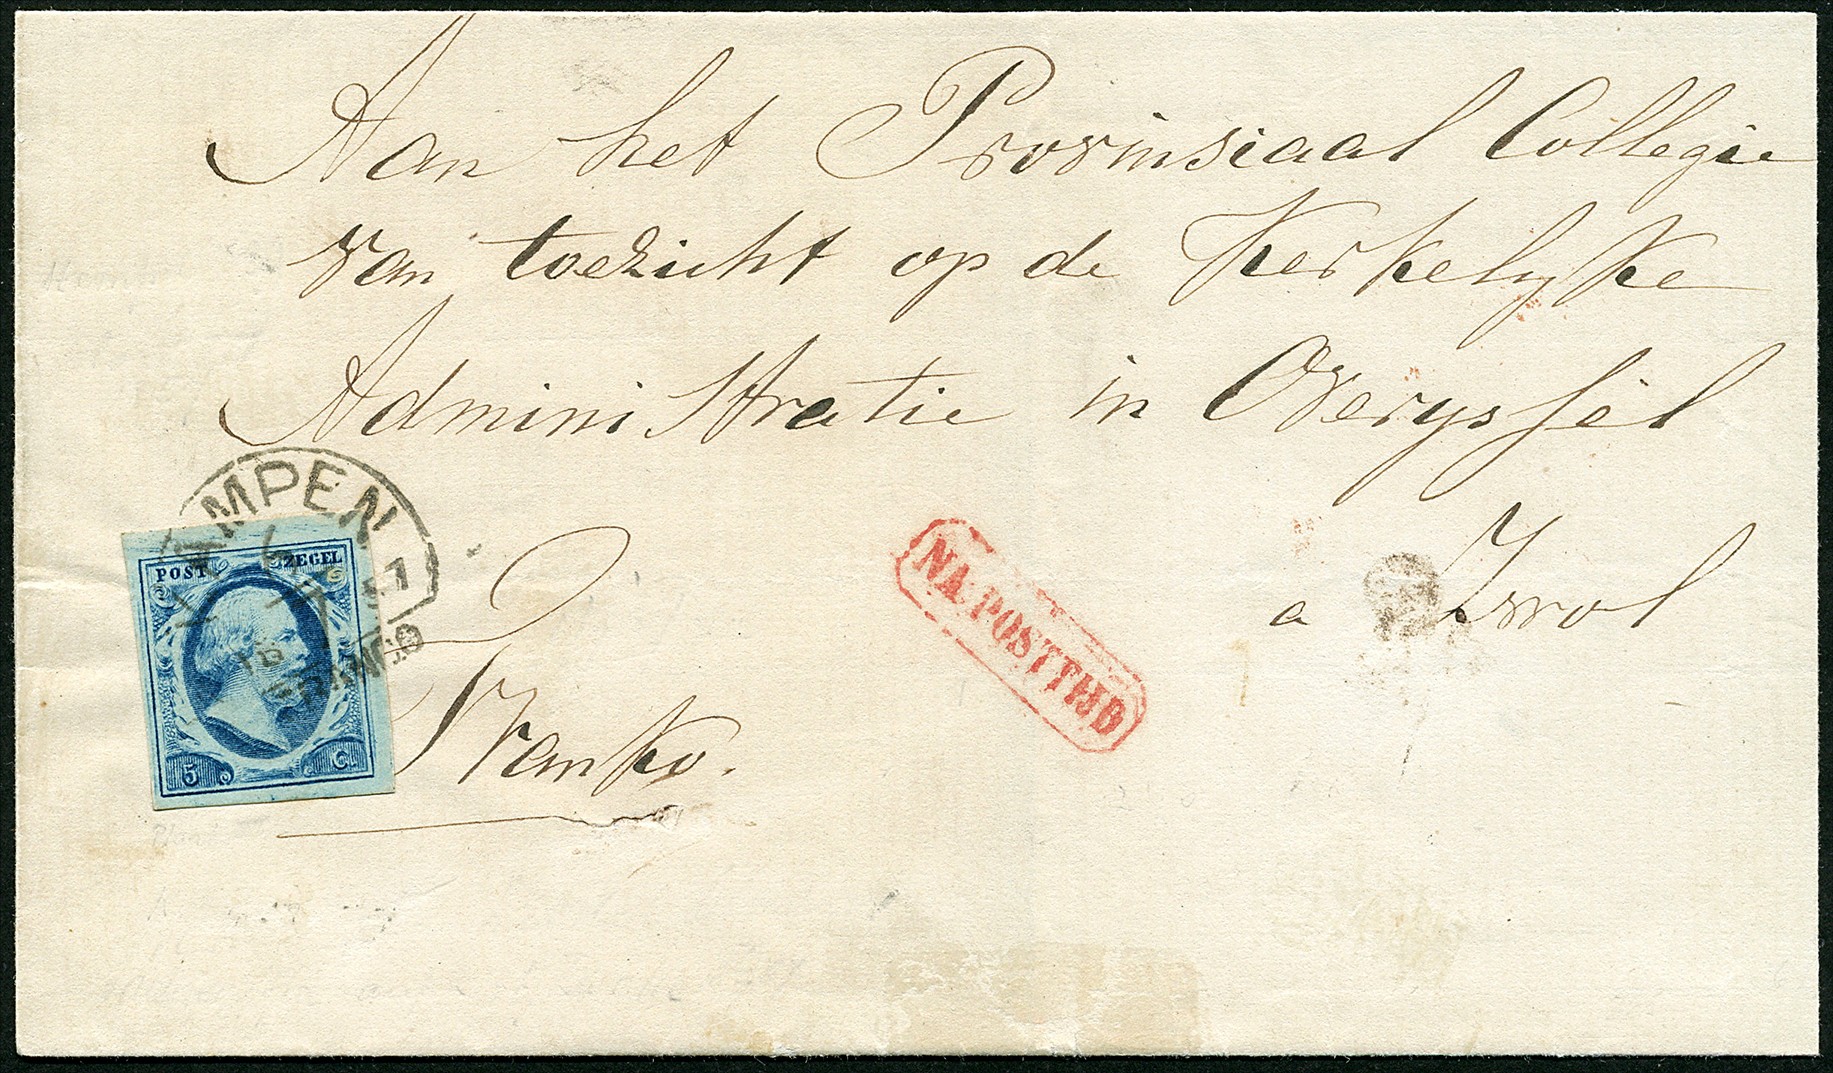 Aan het Provinsiaal Collegie
van toezicht op de Kerkelyke
Administratie in Overyssel
a Zwol
Franko.
KAMPEN
FRANCO
POST ZEGEL
5 Ct
NA POSTTIJD